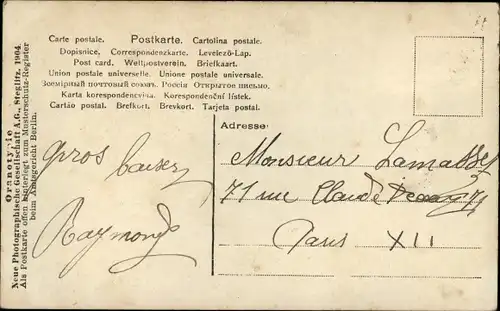 Carte postale. Postkarte. Cartolina postale.
Dopisnice, Correspondenzkarte. Levelező-Lap.
Post card. Weltpostverein. Briefkaart.
Union postale universelle. Unione postale universale.
Всемірный почтовый союзъ. Россія Открытое письмо.
Karta korespondencyjna. Korespondenční lístek.
Cartão postal. Brefkort. Brevkort. Tarjeta postal.
Oranotypie
Neue Photographische Gesellschaft A.G., Steglitz. 1904.
Als Postkarte offen hinterlegt zum Musterschutz-Register
beim Amtsgericht Berlin.
gros baisers
Raymonde
Adresse:
Monsieur
71 rue Claude
Paris XII